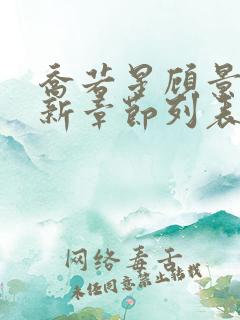 乔若星顾景
新章节列表
网络毒舌
未经同意禁止转载